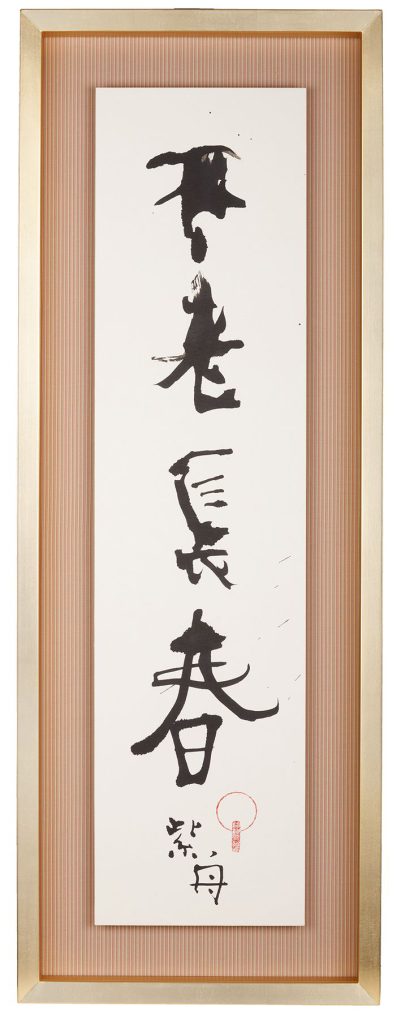 不老長春
紫舟